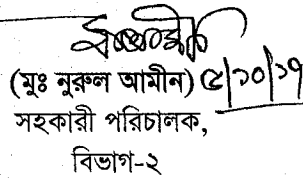 (মুঃ নুরুল আমীন) ৫/১০/১৭
সহকারী পরিচালক,
বিভাগ-২